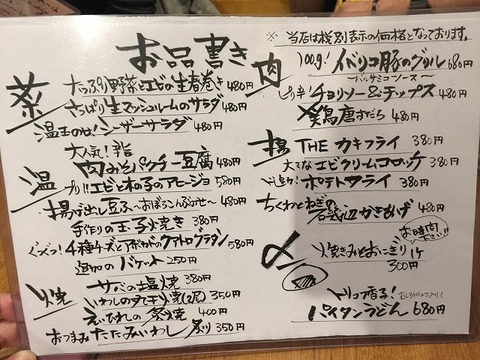 お品書き
※当店は税別表示の価格となっております。
菜
たっぷり野菜とエビの生春巻き 480円
さっぱり生マッシュルームのサラダ 480円
温玉のせ!シーザーサラダ 480円
温
大人気!辛旨
肉みそパクチー豆腐 480円
プリ!!エビときの子のアヒージョ 580円
揚げ出し豆ふ〜おぼろこんぶのせ〜 480円
手作りの玉子焼き 380円
グツグツ!4種チーズとアボカドのクアトログラタン 580円
追加のバケット 250円
焼
サバの塩焼 380円
いわしの丸干焼(2尾) 350円
えいひれの炙焼 400円
おつまみたたみいわし 炙り 350円
肉
100g!イベリコ豚のグリル 680円
〜バルサミコソース〜
ピリ辛チョリソー&チップス 480円
鶏唐すだち 480円
揚
THE カキフライ 380円
大きなエビクリームコロッケ 380円
ポテトフライ 380円
ちくわとねぎの
かきあげ 480円
お時間下さい!!
〆
焼きみそおにぎり 1ケ
300円
トリュフ香る!
パイタンうどん 680円